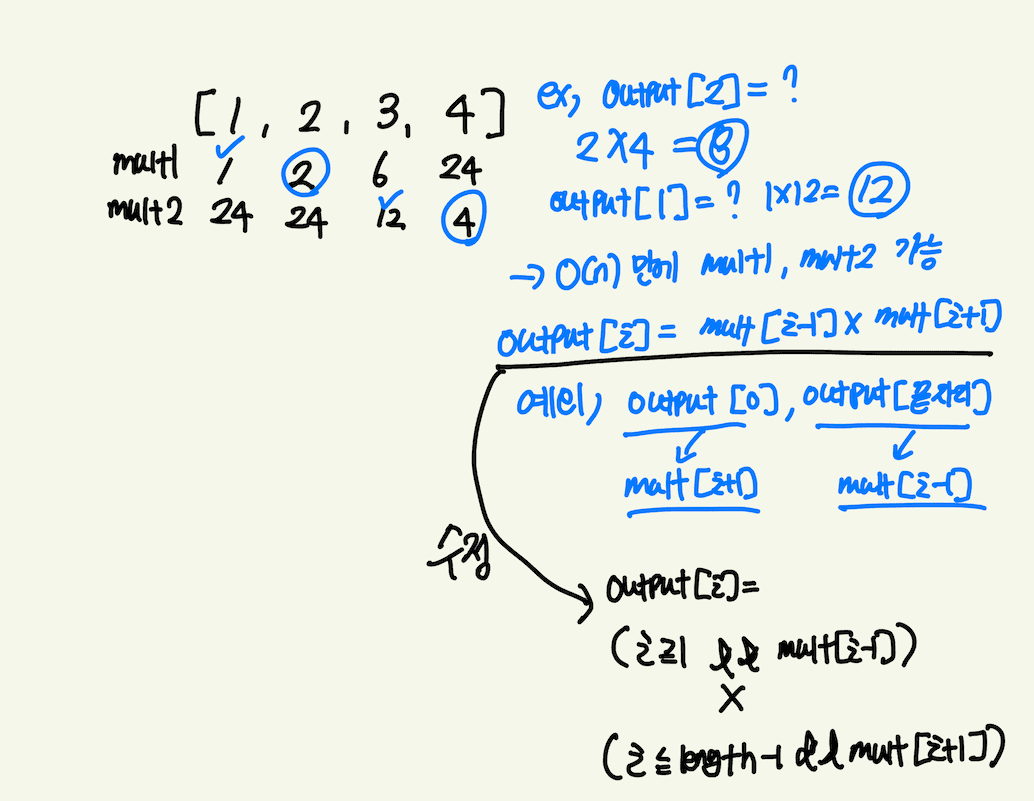 [1, 2, 3, 4]
mult1 1 2 6 24
mult2 24 24 12 4
ex, output[2] = ?
2×4 = 8
output[1] = ? 1×12 = 12
→ O(n) 만에 mult1, mult2 가능
output[i] = mult[i-1] × mult[i+1]
예외, output[0], output[끝자리]
mult[i+1] mult[i-1]
수정
output[i] =
(i≥1 && mult[i-1])
×
(i≦length-1 && mult[i+1])